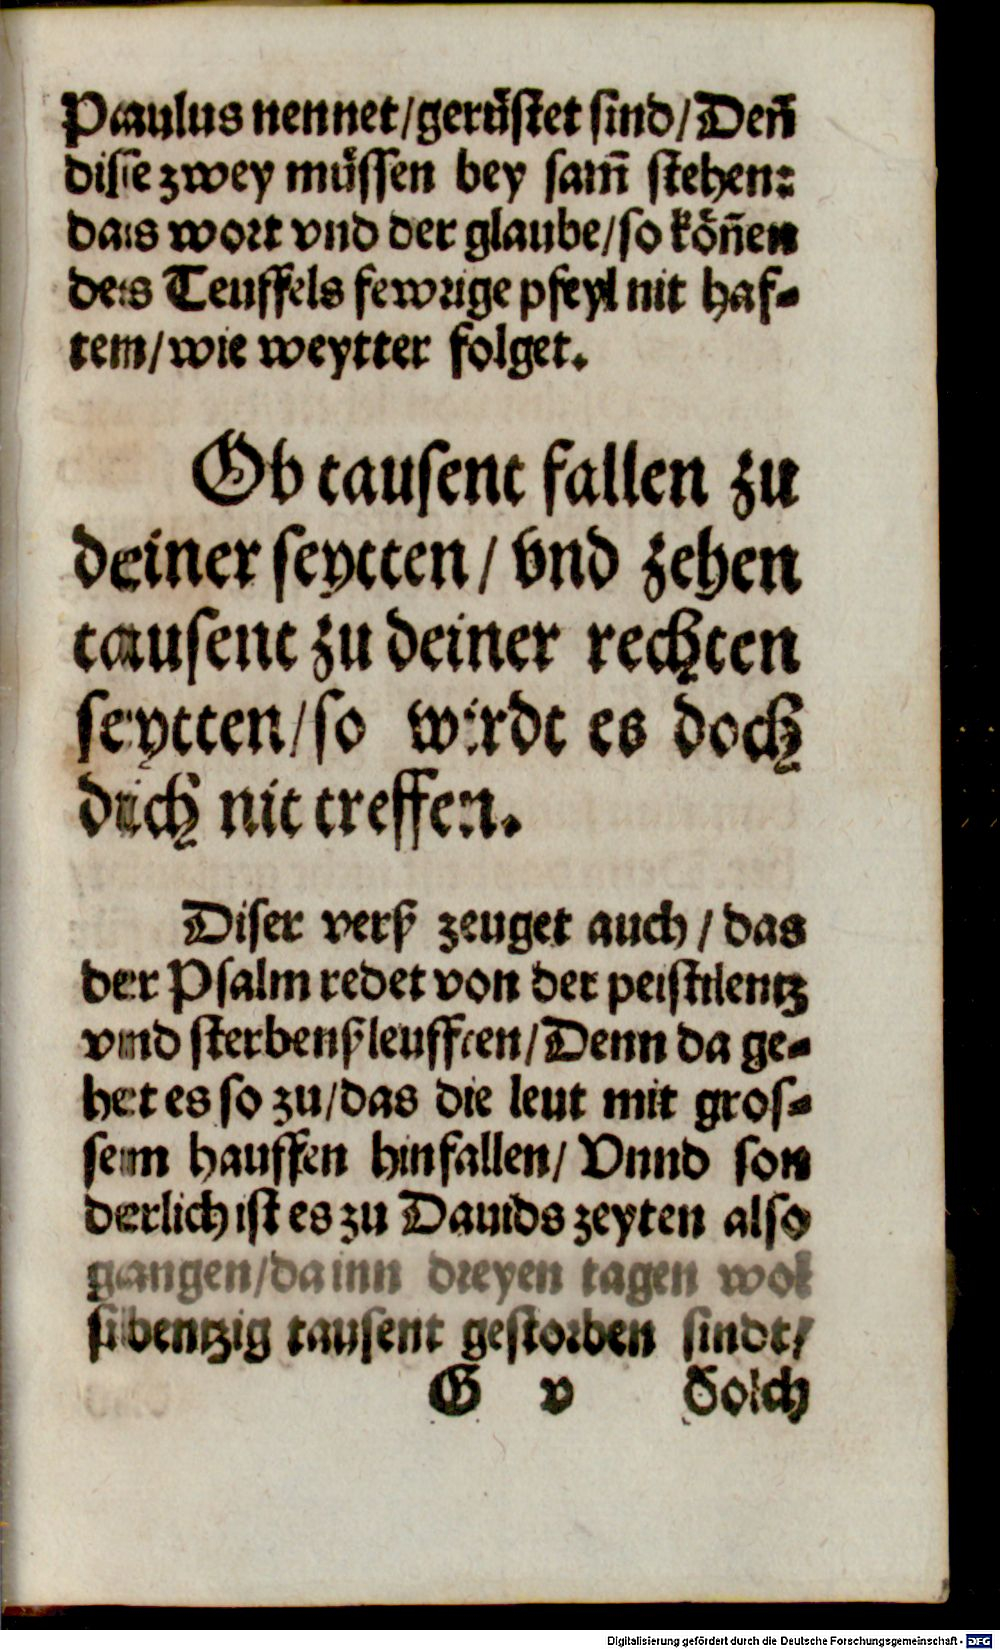 Paulus nennet/gerüstet sind/Deñ
disse zwey müssen bey sam̃ stehen:
das wort vnd der glaube/so köñen
des Teuffels fewrige pfeyl nit haf-
ten/wie weytter folget.
Ob tausent fallen zu
deiner seytten/vnd zehen
tausent zu deiner rechten
seytten/so wirdt es doch
dich nit treffen.
Diser verß zeuget auch/das
der Psalm redet von der pestilentz
vnnd sterbenßleufften/Denn da ge-
het es so zu/das die leut mit gros-
sem hauffen hinfallen/Vnnd son
derlich ist es zu Dauids zeyten also
gangen/da inn dreyen tagen wol
sibentzig tausent gestorben sindt/
G v Solch
Digitalisierung gefördert durch die Deutsche Forschungsgemeinschaft - DFG